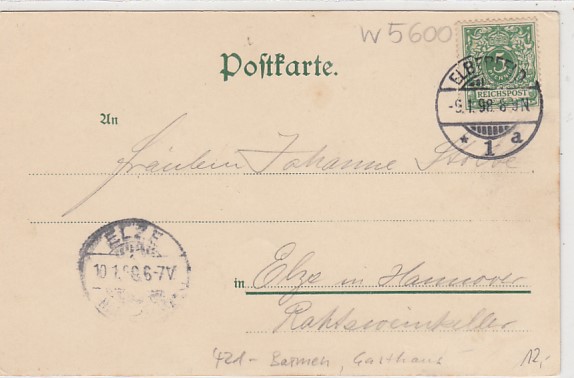 W 5600
Postkarte.
5
REICHSPOST
ELBERFELD
-9.1.98. 8-9N
* 1 a
An
Fräulein Johanne
ELZE
10.1.98.6-7V
in Elze in Hannover
Rathsweinkeller
42d - Barmen, Gasthaus
12,-